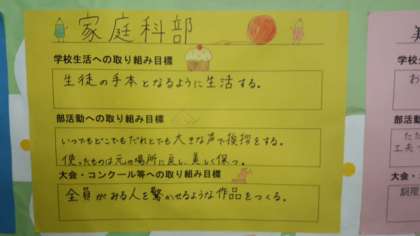 家庭科部
学校生活への取り組み目標
生徒の手本となるように生活する。
部活動への取り組み目標
いつでもどこでもだれとでも大きな声で挨拶をする。
使ったものは元の場所に戻し、美しく保つ。
大会・コンクール等への取り組み目標
全員がみる人を驚かせるような作品をつくる。
学校
部活
大会・